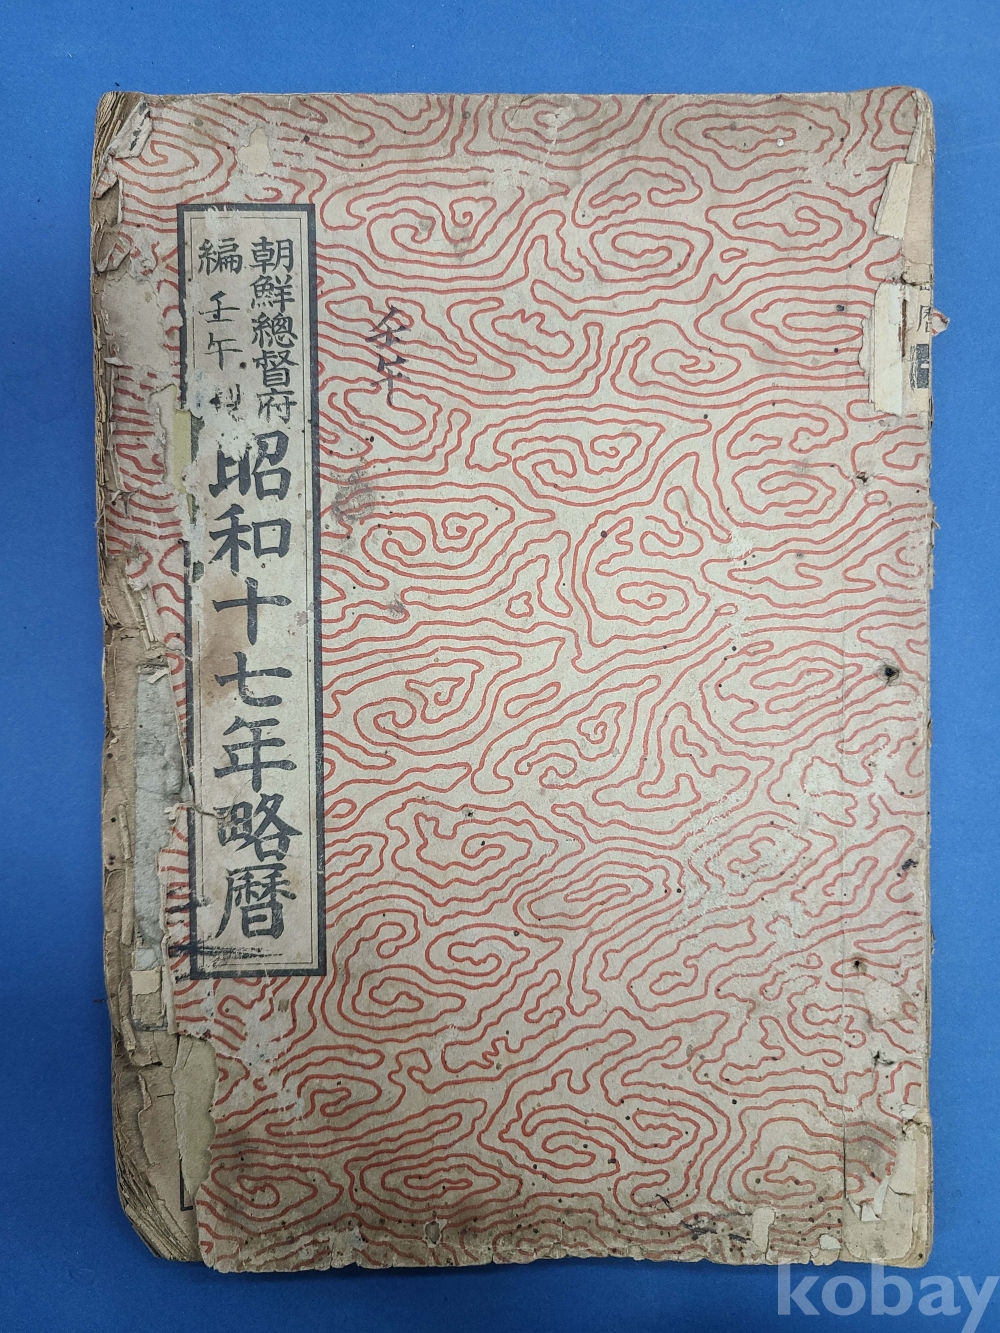 朝鮮總督府
編
壬午
昭和十七年略暦
壬午
暦
kobay